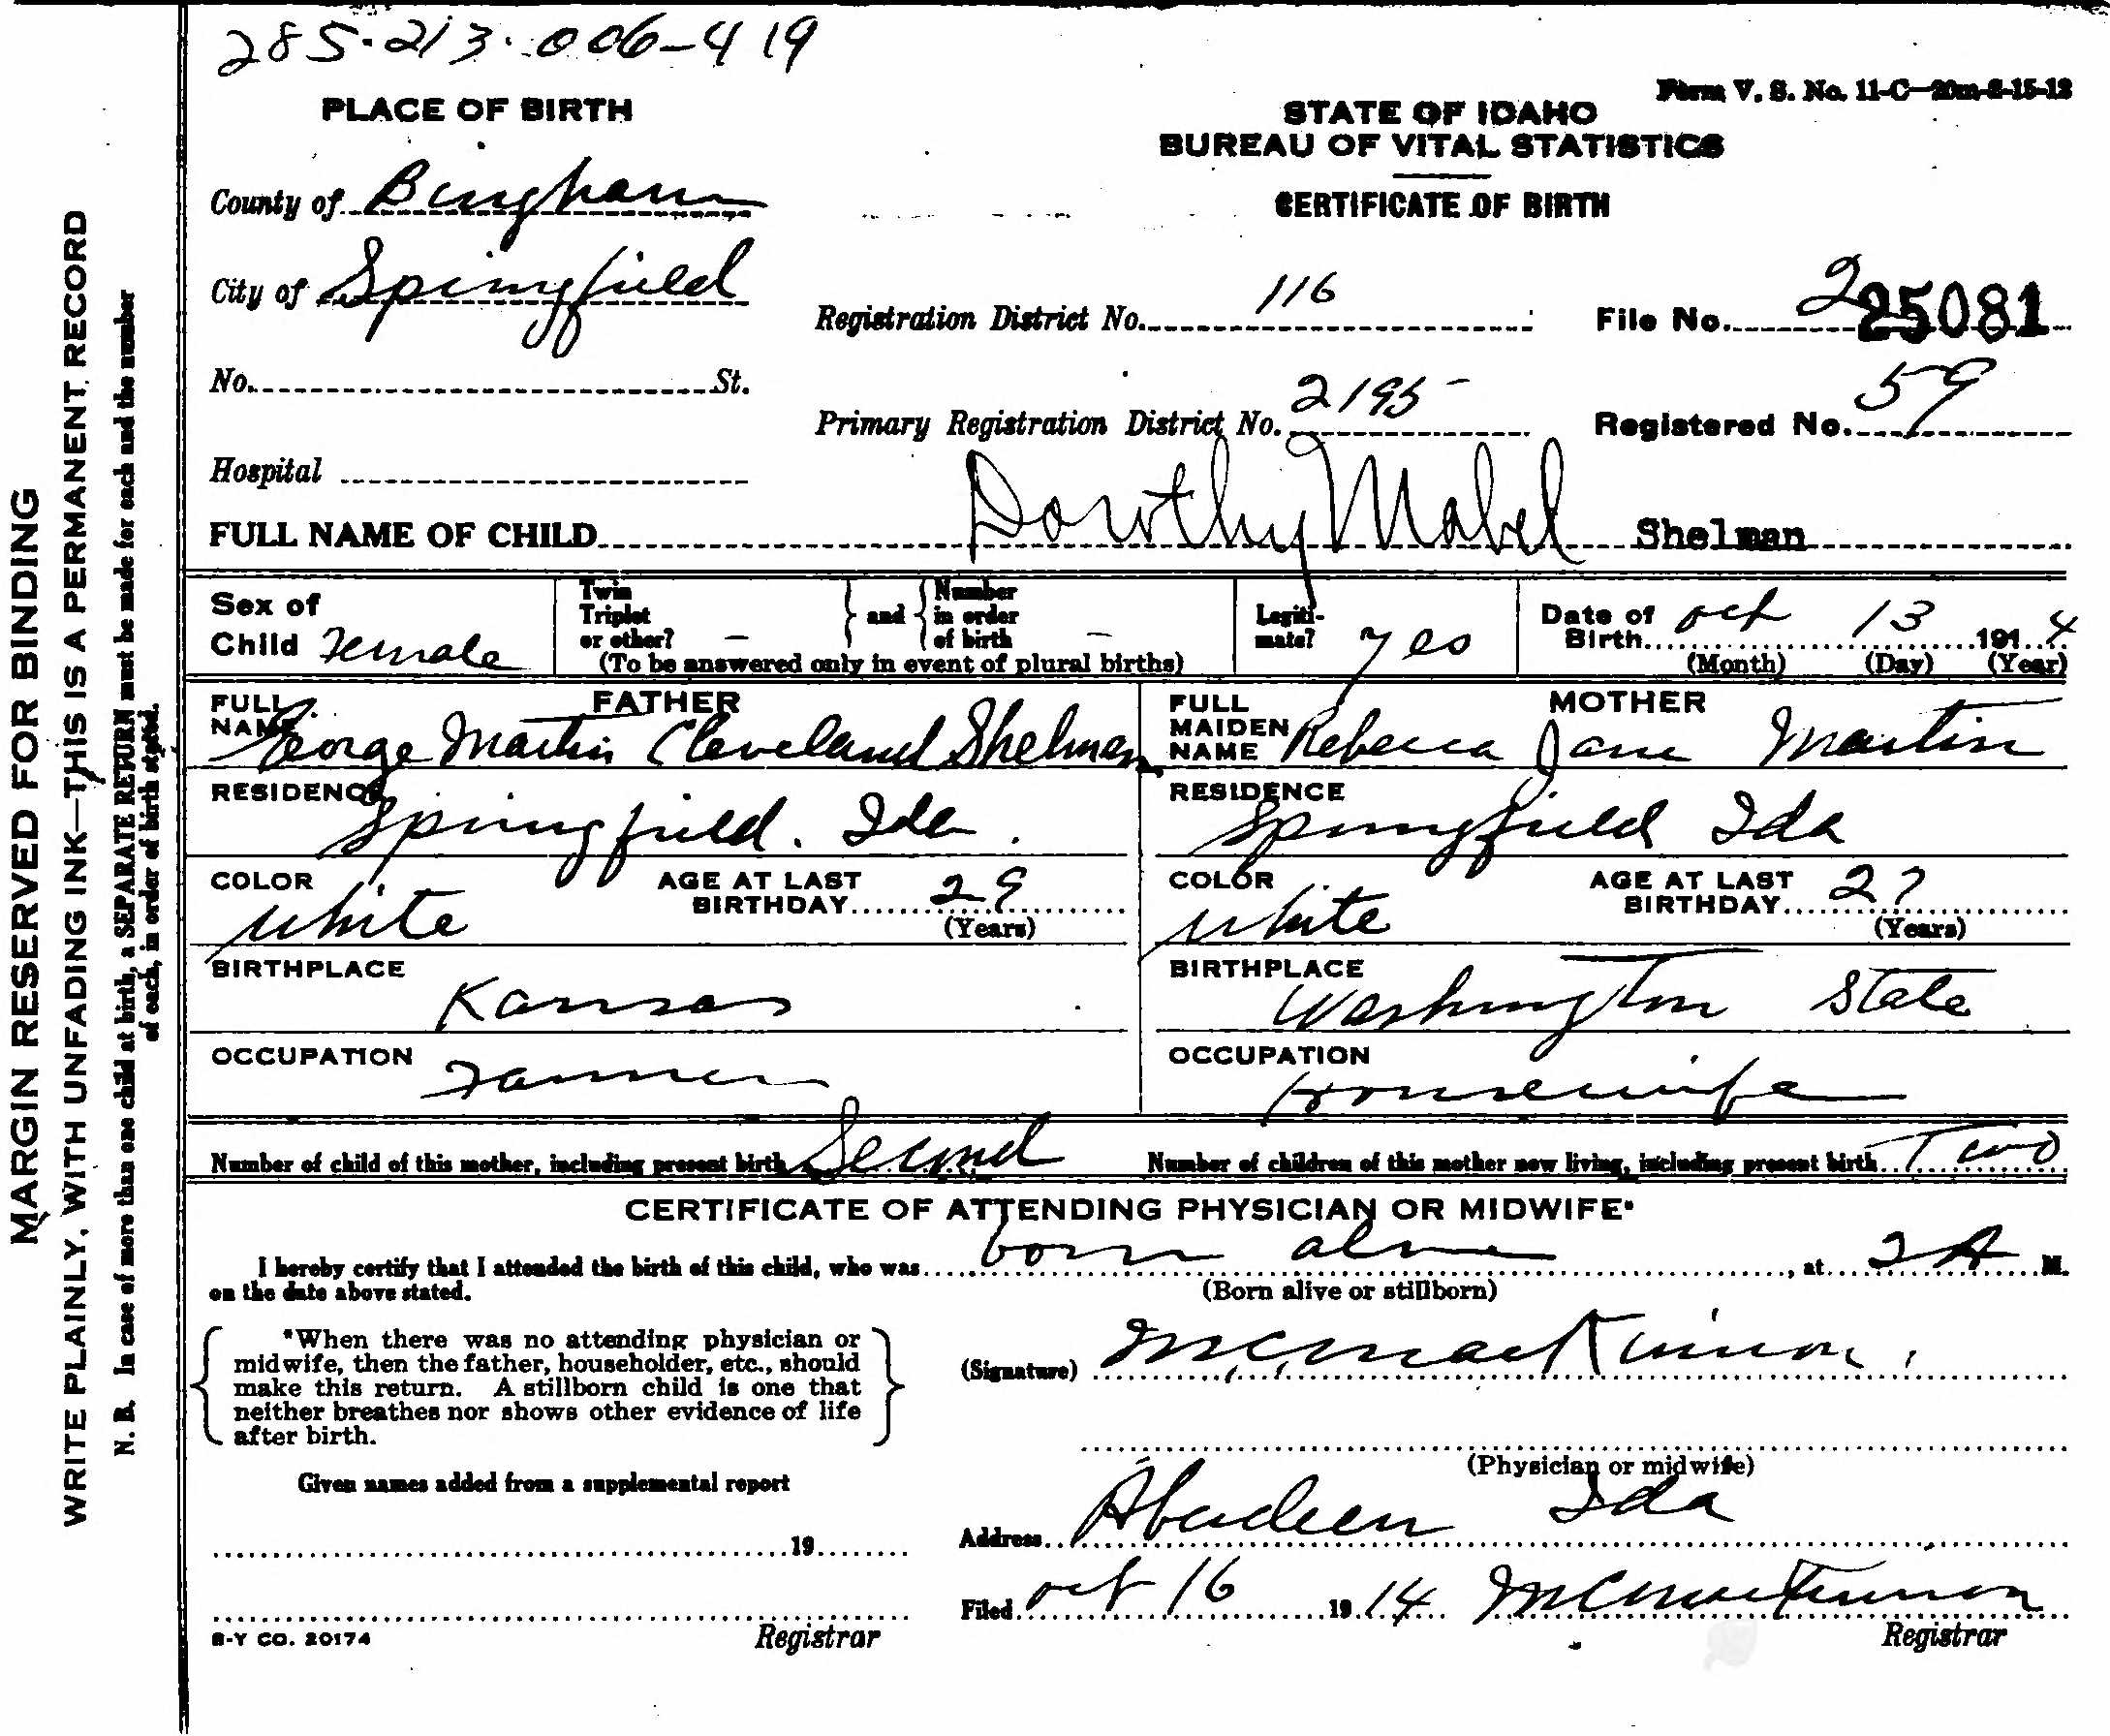 285-213-006-419
Form V. S. No. 11-C-20m-6-15-12
PLACE OF BIRTH
STATE OF IDAHO
BUREAU OF VITAL STATISTICS
CERTIFICATE OF BIRTH
County of Bingham
City of Springfield
Registration District No. 116
File No. 225081
No. St.
Primary Registration District No. 2195
Registered No. 59
Hospital
FULL NAME OF CHILD Dorothy Mabel Shelman
Sex of Child Female
Twin Triplet or other? - and Number in order of birth -
(To be answered only in event of plural births)
Legitimate? yes
Date of Birth Oct 13 1914
(Month) (Day) (Year)
FATHER
FULL NAME George Martin Cleveland Shelman
RESIDENCE Springfield. Ida.
COLOR White
AGE AT LAST BIRTHDAY 29
(Years)
BIRTHPLACE Kansas
OCCUPATION Farmer
MOTHER
FULL MAIDEN NAME Rebecca Jane Martin
RESIDENCE Springfield Ida
COLOR White
AGE AT LAST BIRTHDAY 27
(Years)
BIRTHPLACE Washington State
OCCUPATION Housewife
Number of child of this mother, including present birth Second
Number of children of this mother now living, including present birth Two
CERTIFICATE OF ATTENDING PHYSICIAN OR MIDWIFE*
I hereby certify that I attended the birth of this child, who was born alive, at 2 A M.
on the date above stated.
(Born alive or stillborn)
*When there was no attending physician or
midwife, then the father, householder, etc., should
make this return. A stillborn child is one that
neither breathes nor shows other evidence of life
after birth.
(Signature) M.C. MacKinnon.
(Physician or midwife)
Given names added from a supplemental report
19
Address Aberdeen Ida
Filed Oct 16 1914 M C MacKinnon
Registrar
Registrar
B-Y CO. 20174
MARGIN RESERVED FOR BINDING
WRITE PLAINLY, WITH UNFADING INK—THIS IS A PERMANENT RECORD
N. B. In case of more than one child at birth, a SEPARATE RETURN must be made for each and the number
of each, in order of birth stated.